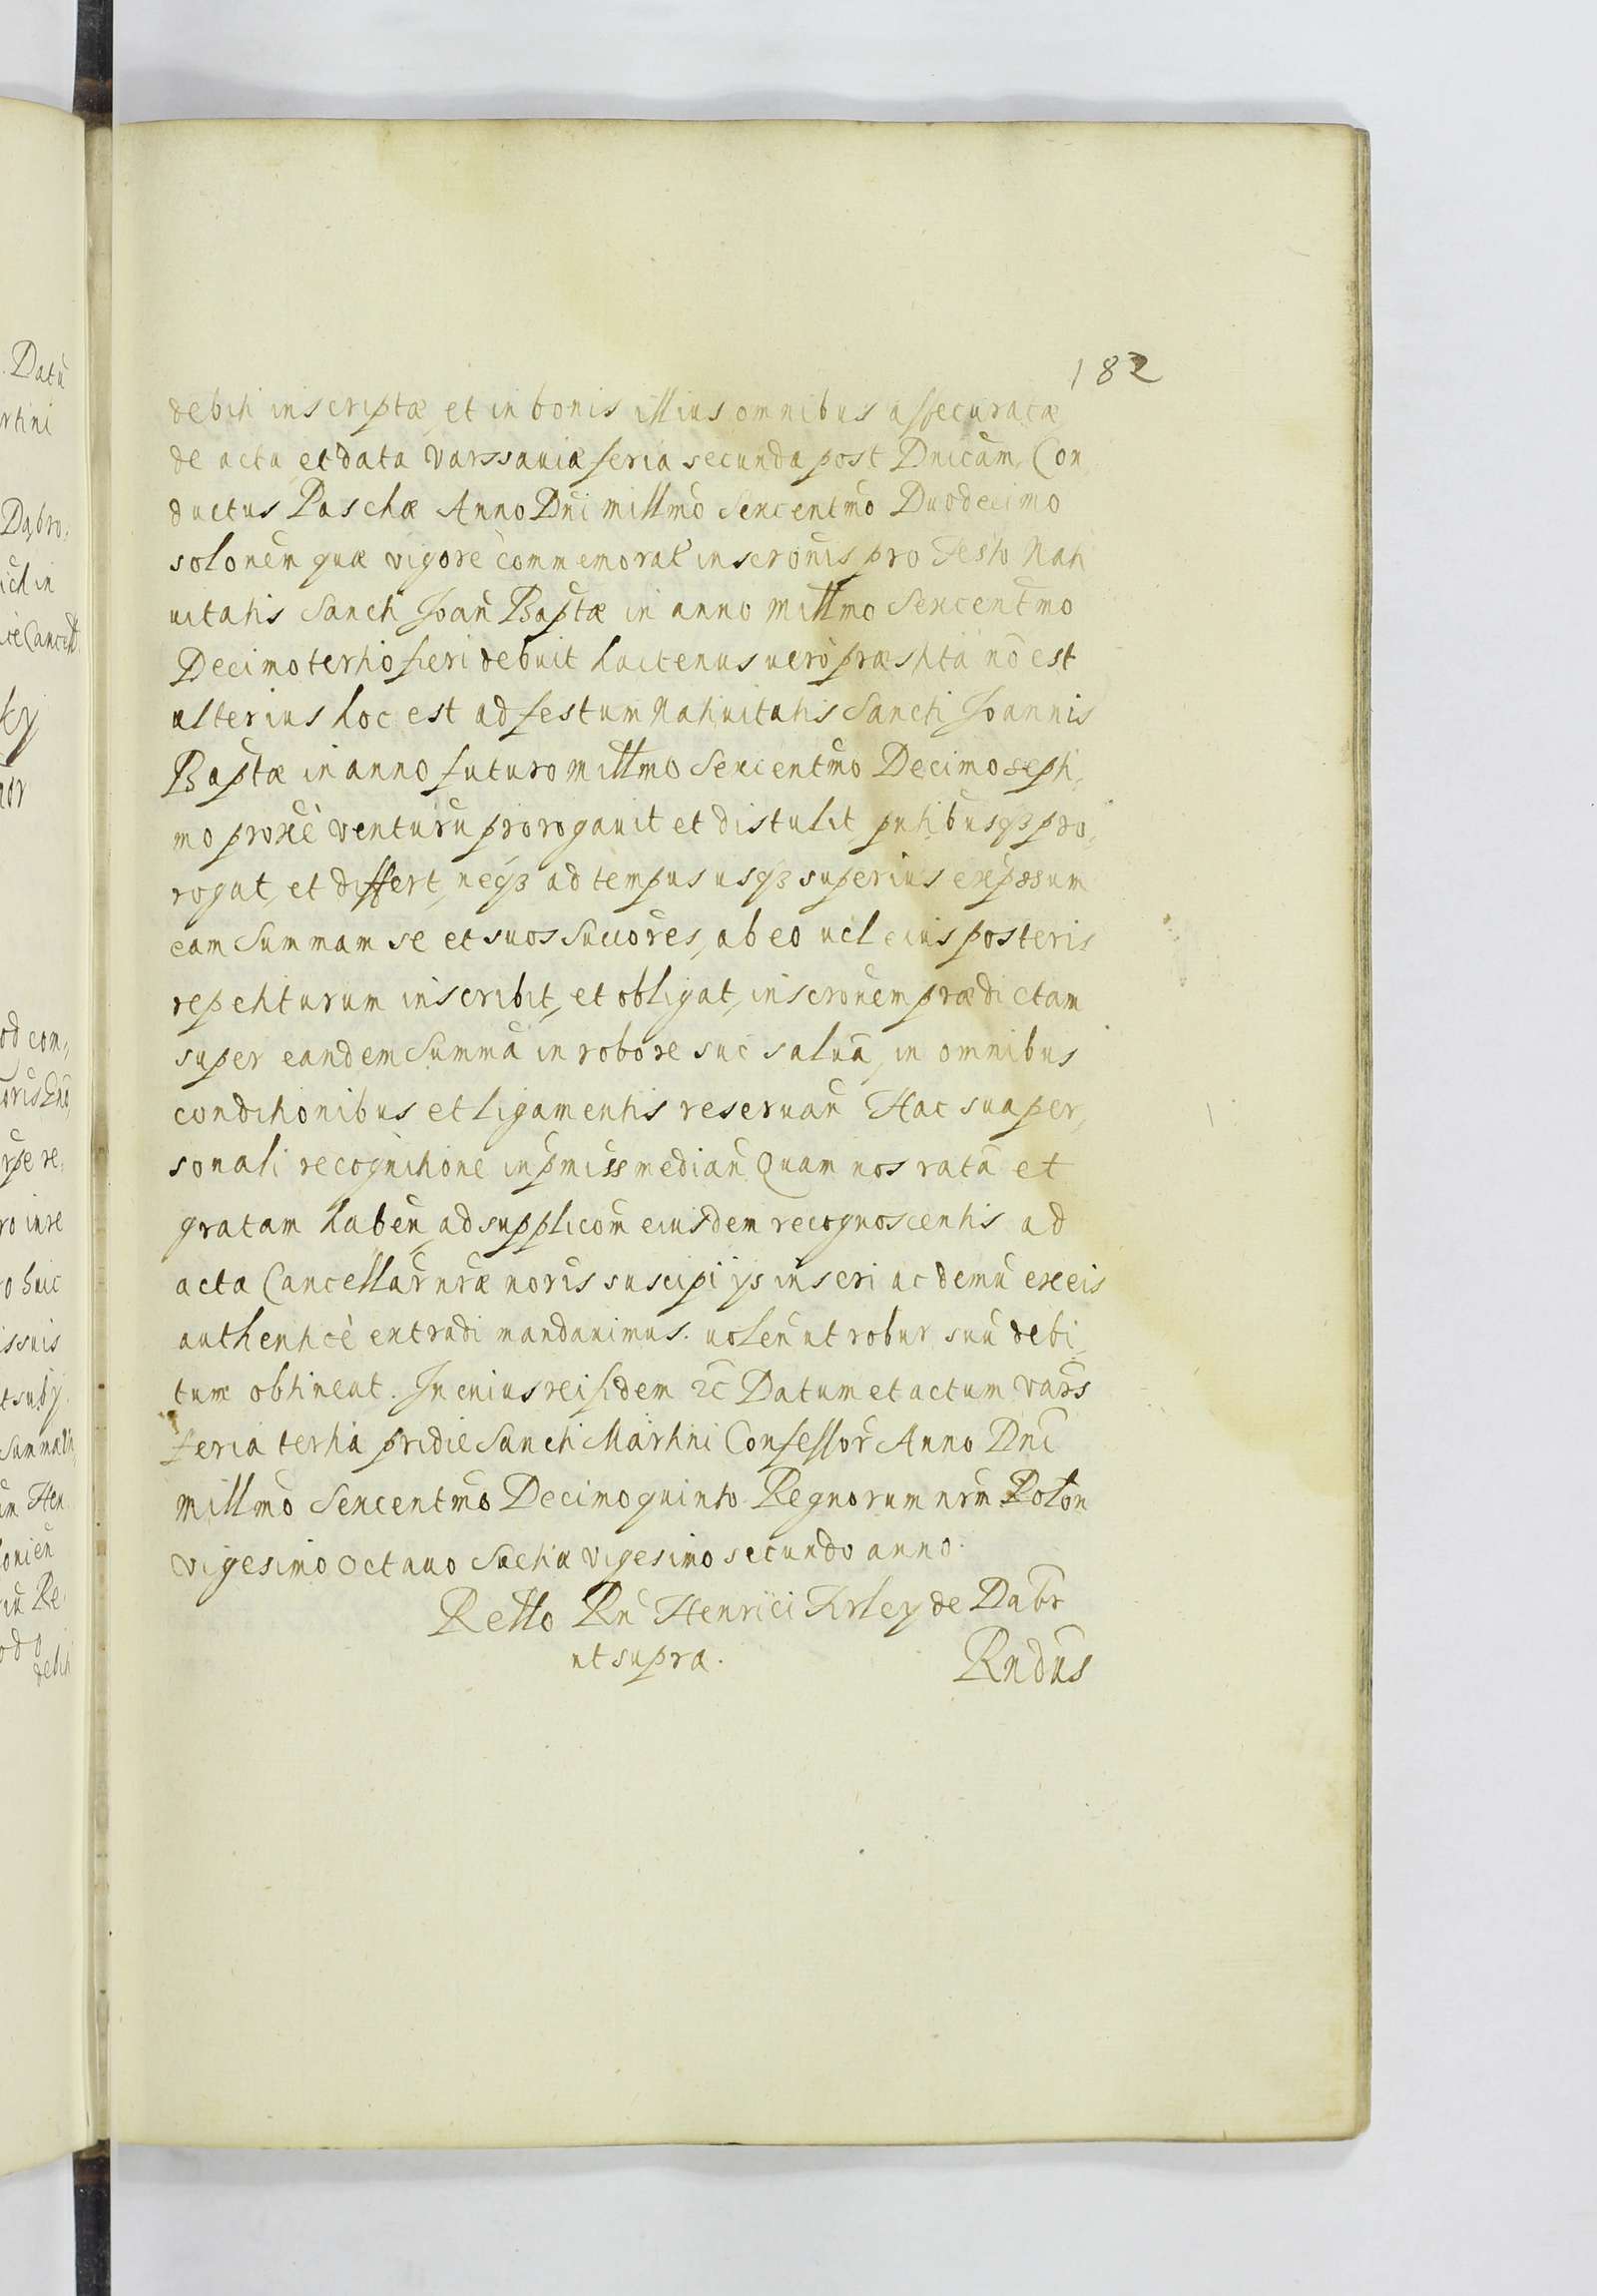 182
debiti inscriptæ et in bonis illius omnibus assecuratæ
de actu et data Varssauiæ feria secunda post Dnicam Con
ductus Paschæ Anno Dni millmo Sexcentmo Duodecimo
solonem quæ vigore commemorat inscronis pro Festo Nati
uitatis Sancti Joan Baptæ in anno Millmo Sexcentmo
Decimotertio fieri debuit hactenus uero præstita no est
ulterius hoc est ad festum Natiuitatis Sancti Joannis
Baptæ in anno futuro Millmo Sexcentmo Decimosepti,
mo proxè venturu prorogauit et distulit pntibusqz pro,
rogat, et differt, neqz ad tempus usqz superius expssum
eam Summam se et suos Succores, ab eo uel eius posteris
repetiturum inscribit, et obligat, inscronem prædictam
super eandem Summa in robore suo salua, in omnibus
conditionibus et ligamentis reseruan Hac sua per,
sonali recognitione in pmiss median Quam nos rata et
gratam haben, ad supplicom eiusdem recognoscentis ad
acta Cancellar nræ noris suscipi ys inseri ac demu ex eis
authenticè extradi mandauimus. uolen ut robur suu debi,
tum obtineat. In cuius rei fidem 2c Datum et actum Vars
feria tertia pridie Sancti Martini Confessor Anno Dni
Millmo Sexcentmo Decimoquinto Regnorum nrm Polon
Vigesimo Octauo Suetiæ vigesimo secundo anno.
Retto Rn Henrici Firley de Dabr
ut supra.
Rndus